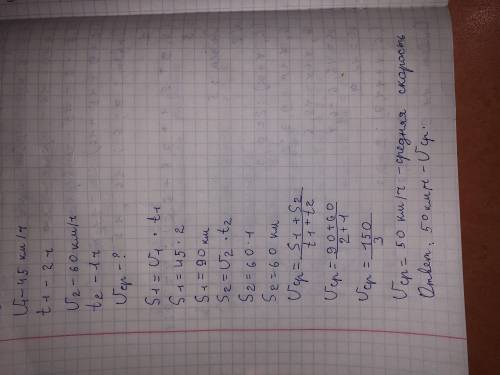 V1-45 км/ч
t1 - 2 ч
V2 - 60 км/ч
t2 - 1 ч
Vср - ?
S1 = V1 · t1
S1 = 45 · 2
S1 = 90 км
S2 = V2 · t2
S2 = 60 · 1
S2 = 60 км
Vср = S1 + S2 / t1 + t2
Vср = 90 + 60 / 2 + 1
Vср = 150 / 3
Vср = 50 км/ч - средняя скорость
Ответ: 50 км/ч - Vср.